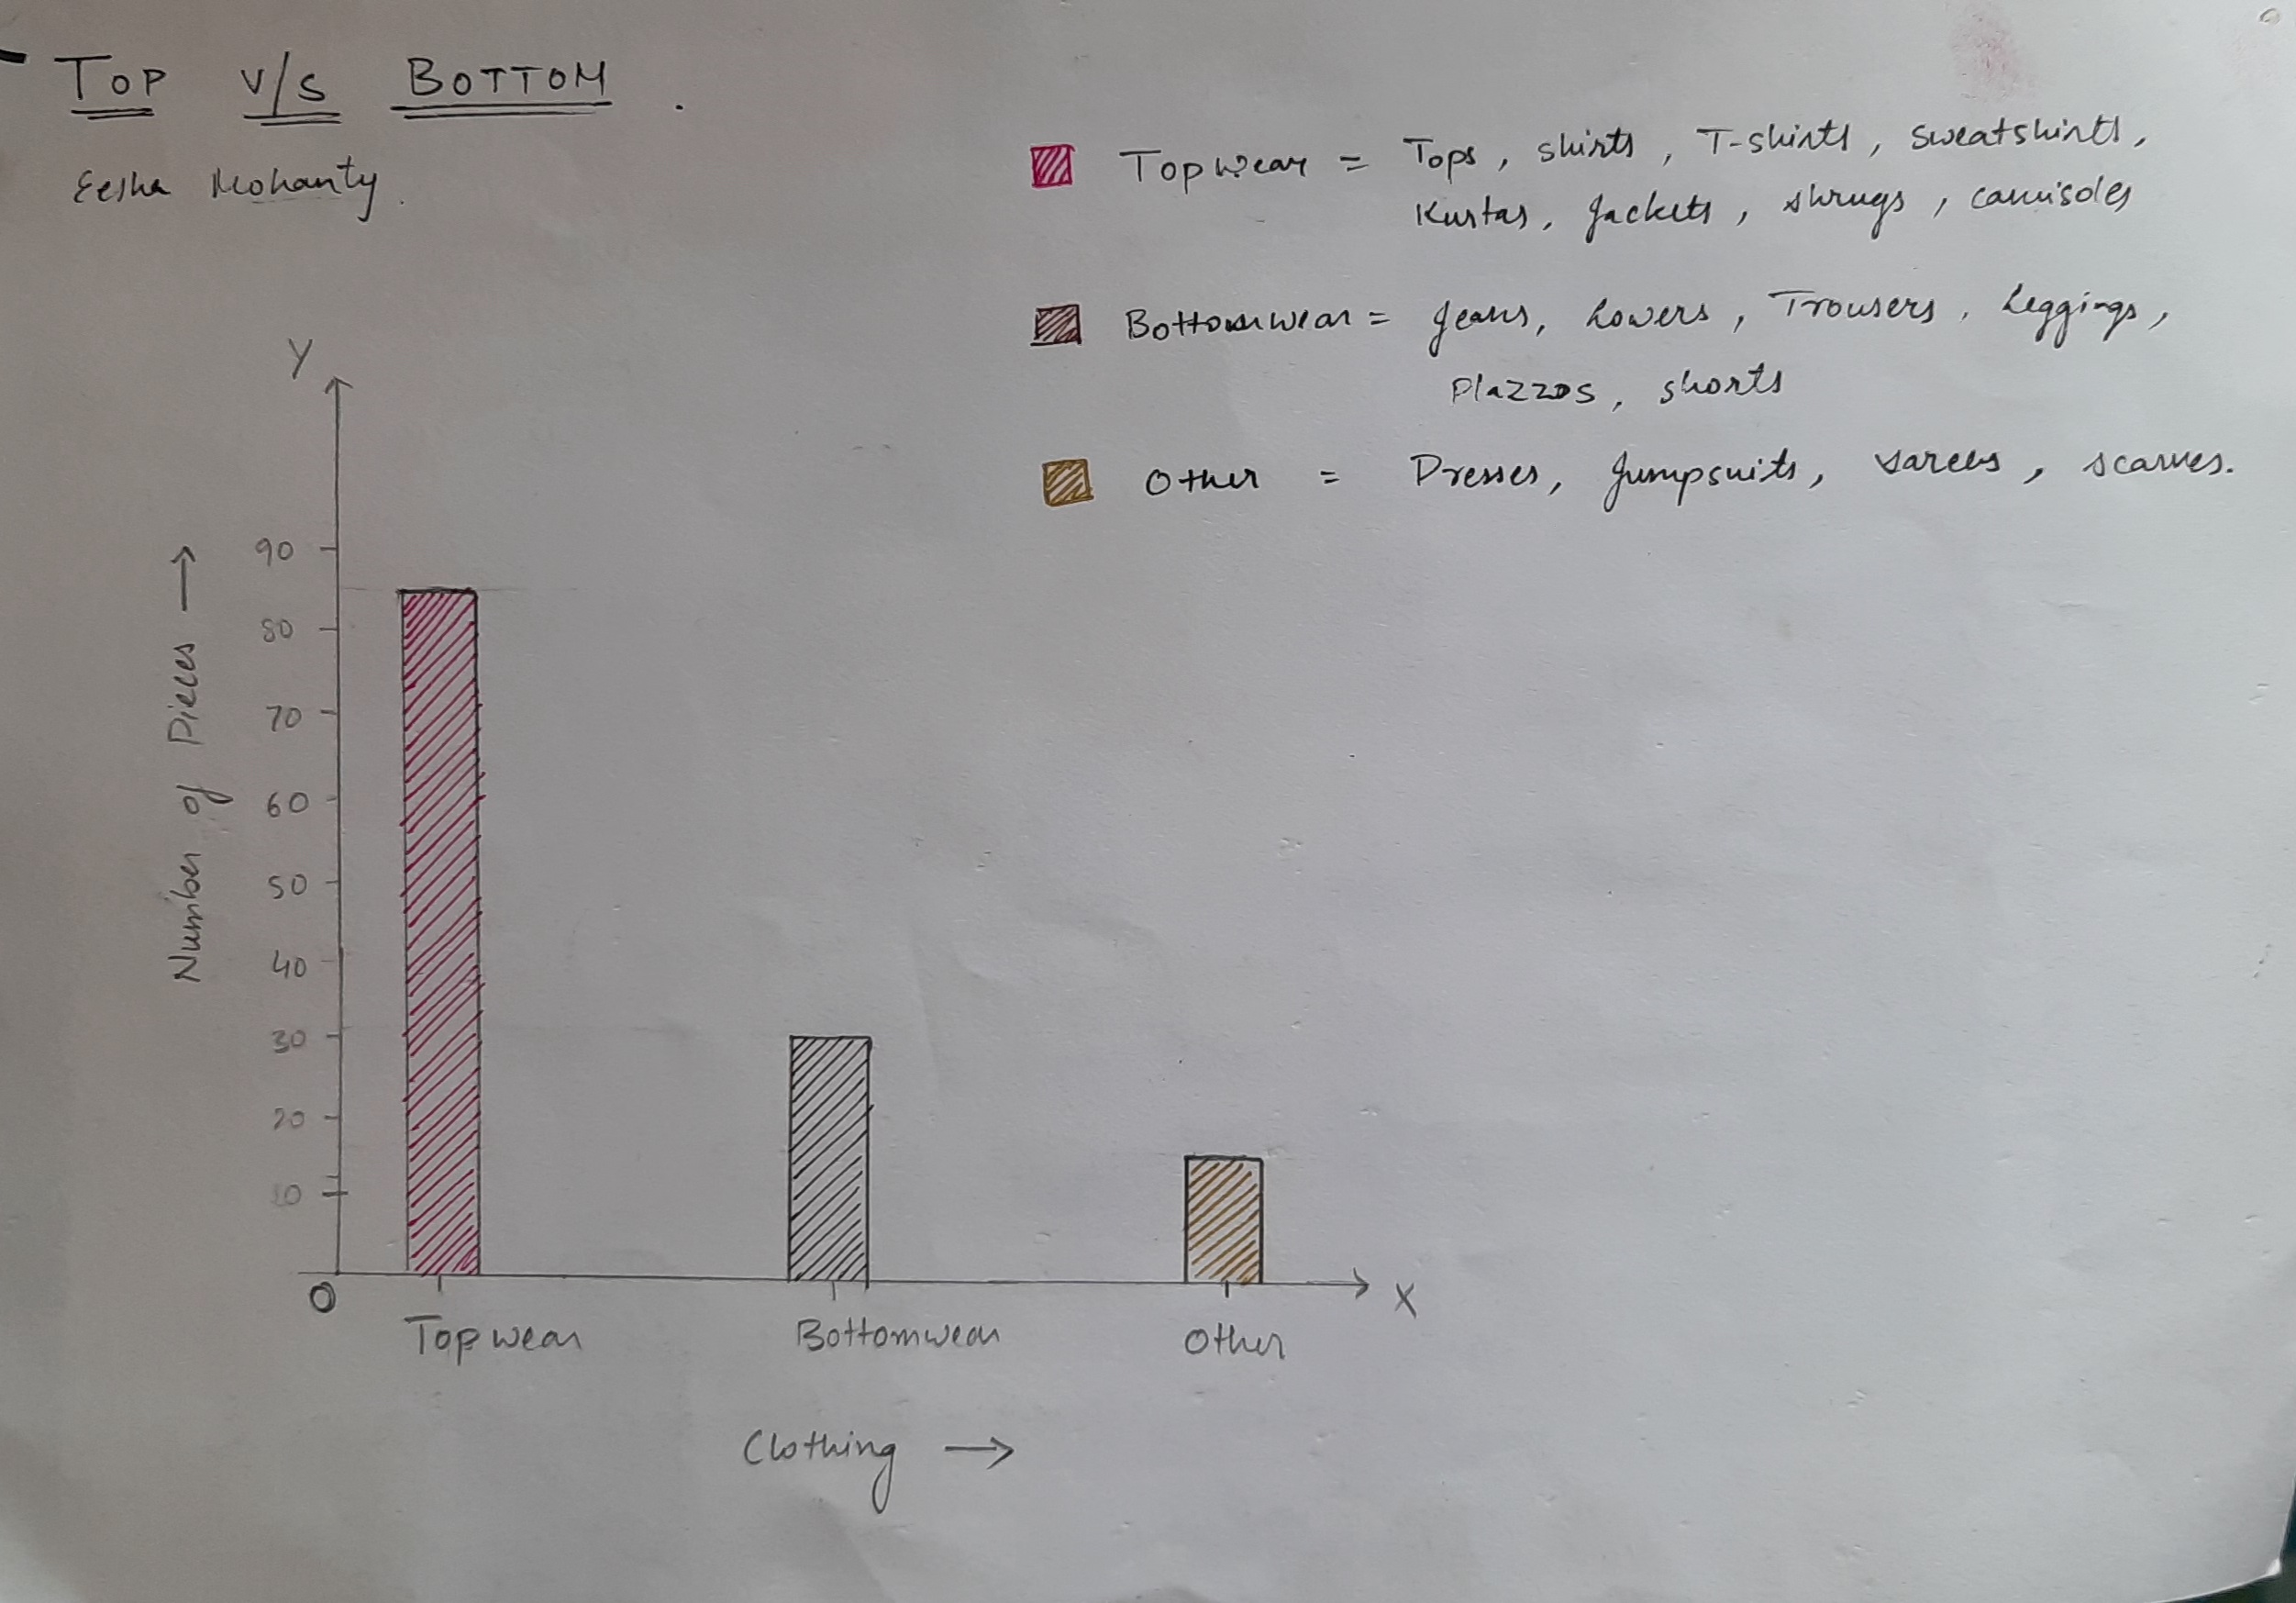 TOP V/S BOTTOM .
Eesha Mohanty.
Topwear = Tops, shirts, T-shirts, Sweatshirts,
Kurtas, Jackets, shrugs, camisoles
Bottomwear = Jeans, Lowers, Trousers, Leggings,
Plazzos, shorts
Other = Dresses, Jumpsuits, sarees, scarves.
Y
Number of Pieces →
90
80
70
60
50
40
30
20
10
O
X
Topwear Bottomwear Other
Clothing →